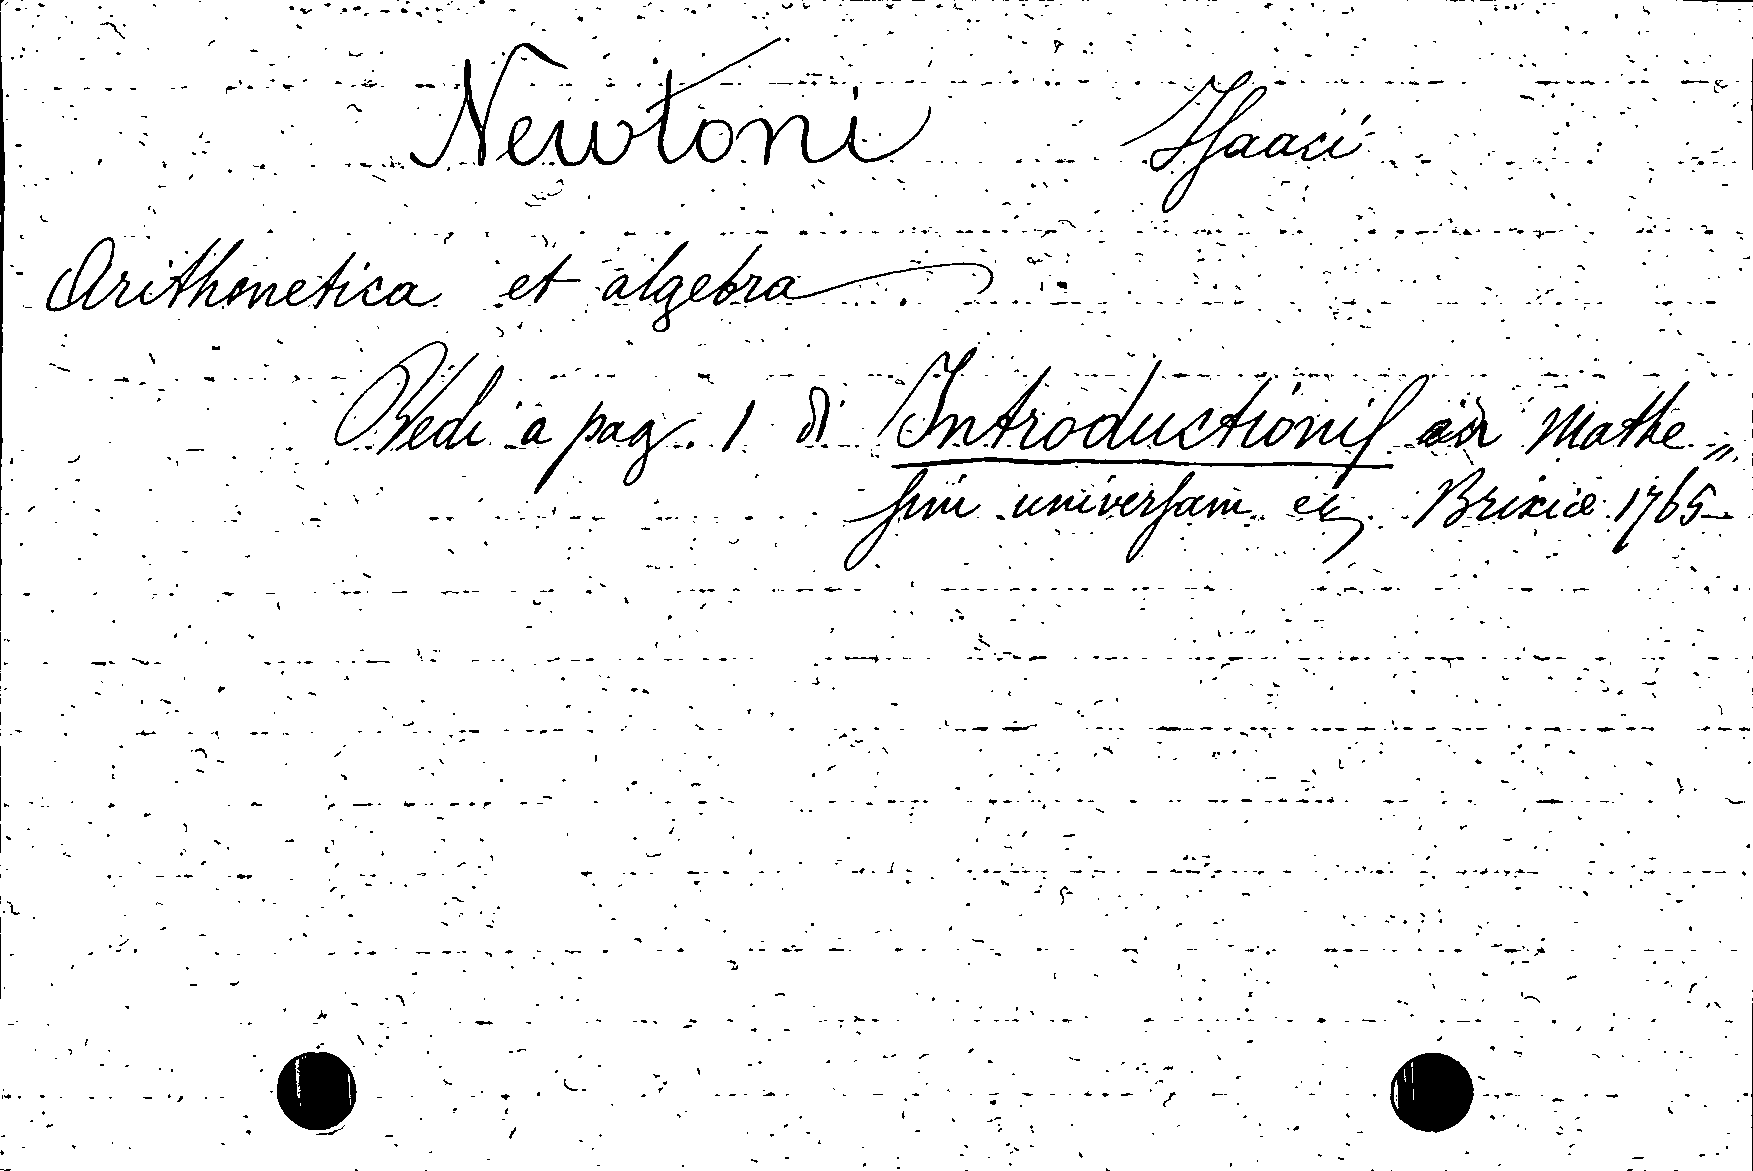 Newtoni Isaaci
Arithmetica et algebra
Vedi a pag. 1 di Introductionis ad Mathe„
sim universam etc. Brixiæ 1765